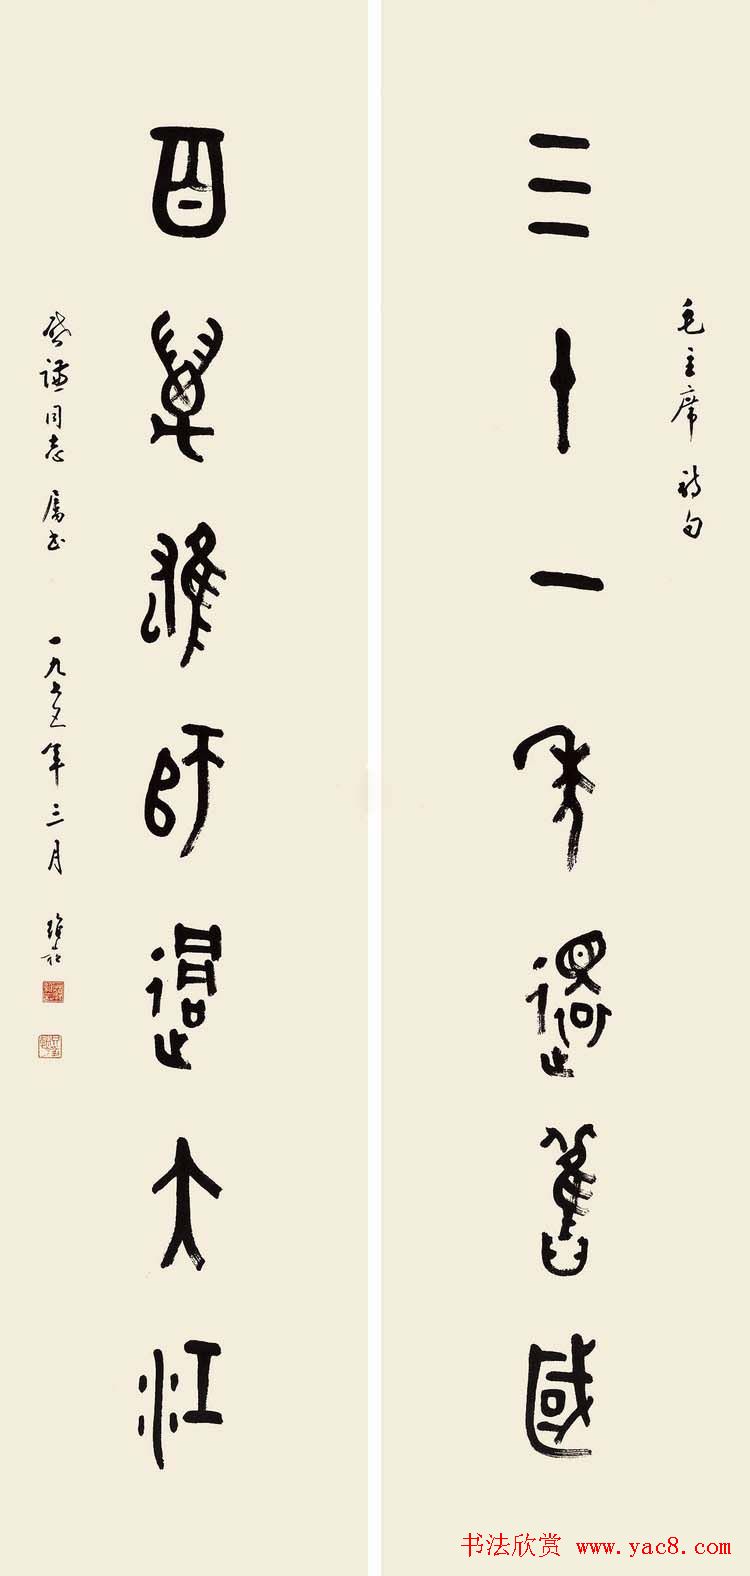 毛主席詩句
三十一年還舊國
百萬雄師過大江
謙同志 屬書 一九七五年三月
书法欣赏 www.yac8.com